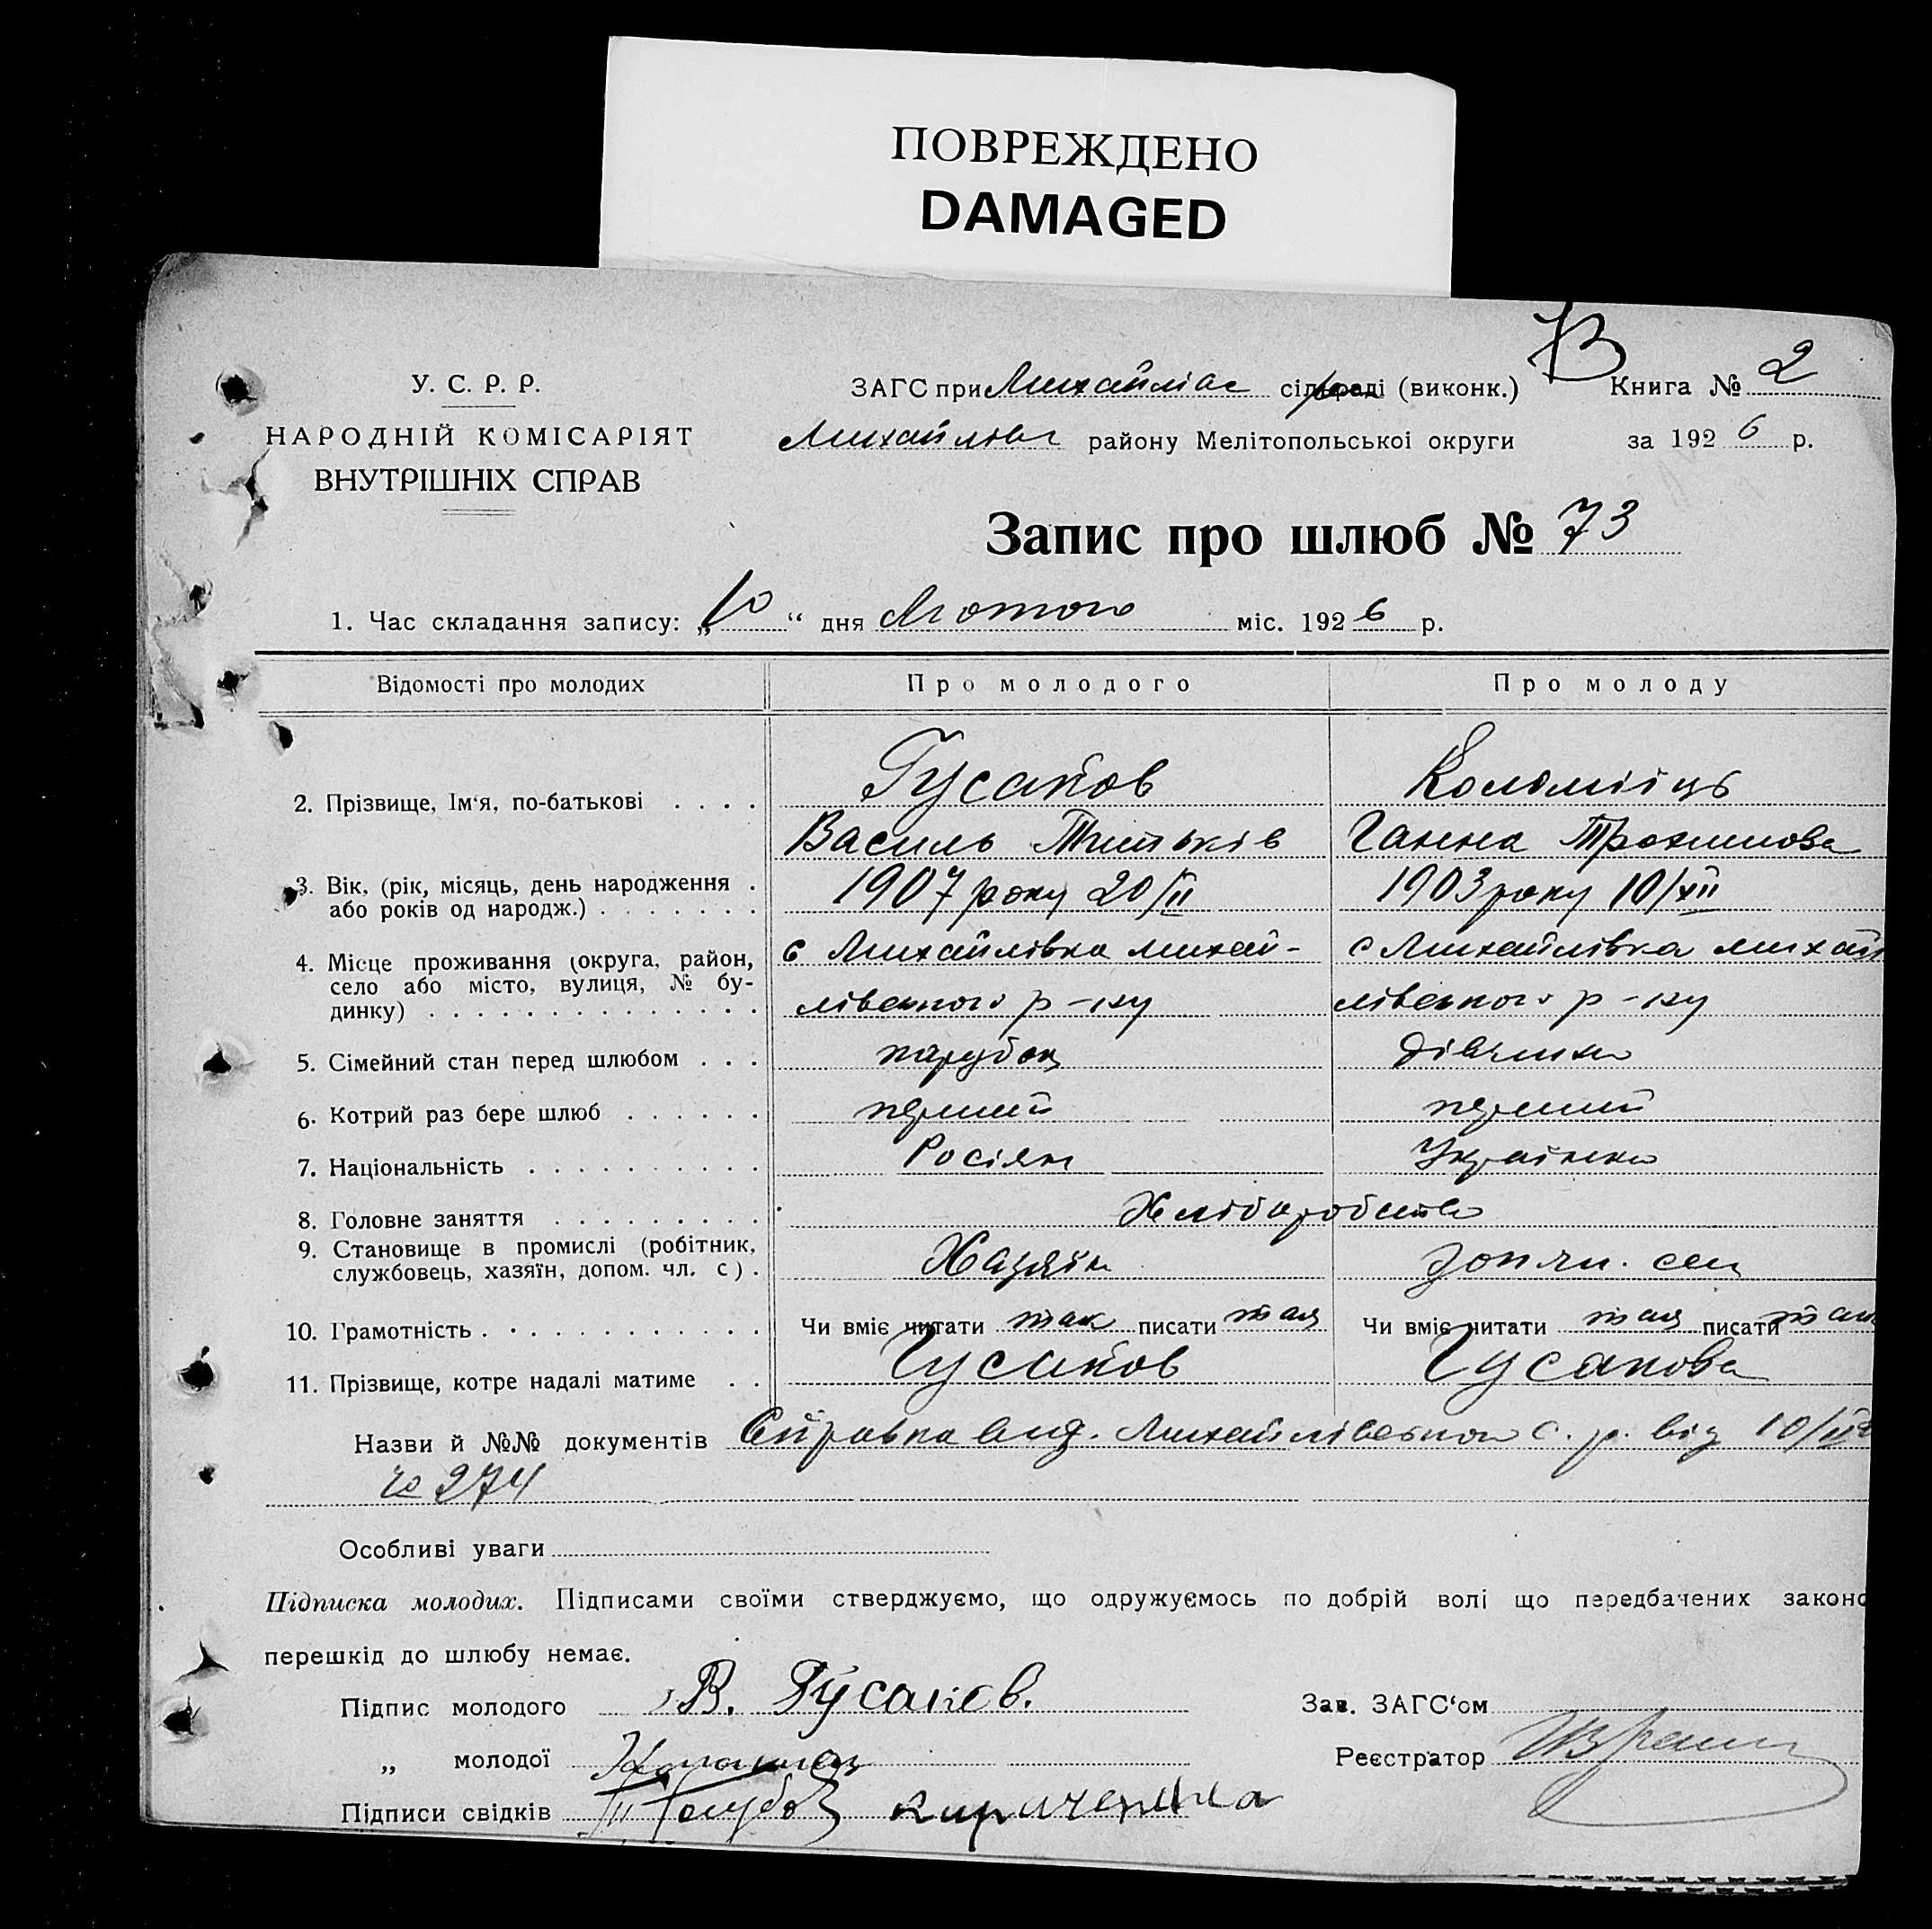 ПОВРЕЖДЕНО
DAMAGED
У. С. Р. Р.
НАРОДНІЙ КОМІСАРІЯТ
ВНУТРІШНІХ СПРАВ
ЗАГС при сільраді (виконк.)
Книга № 2
району Мелітопольської округи
за 1926 р.
Запис про шлюб № 73
1. Час складання запису: „10“ дня Лютого міс. 1926 р.
Відомості про молодих
Про молодого
Про молоду
2. Прізвище, Ім‘я, по-батькові . . . .
Гусаков
Коломієць
Василь
Ганна Трохимова
3. Вік, (рік, місяць, день народження .
або років од народж.) . . . . . . .
1907 року 20/II
1903 року 10/XII
4. Місце проживання (округа, район,
село або місто, вулиця, № бу-
динку) . . . . . . . . . . . . . .
с Михайлівка михай-
лівського р-ну
с Михайлівка михай
лівського р-ну
5. Сімейний стан перед шлюбом . . .
парубок
дівчина
6. Котрий раз бере шлюб . . . . . .
перший
перший
7. Національність . . . . . . . . . .
Росіян
Українка
8. Головне заняття . . . . . . . . .
Хліборобство
9. Становище в промислі (робітник,
службовець, хазяїн, допом. чл. с) .
Хазяїн
доп чл. сем
10. Грамотність . . . . . . . . . . . .
Чи вміє читати так писати так
Чи вміє читати так писати так
11. Прізвище, котре надалі матиме . .
Гусаков
Гусакова
Назви й №№ документів Справка вид. Михайлівською с. р. від 10/II
№ 274
Особливі уваги
Підписка молодих. Підписами своїми стверджуємо, що одружуємось по добрій волі що передбачених законо
перешкід до шлюбу немає.
Підпис молодого В. Гусаков.
Зав. ЗАГС‘ом
„ молодої
Реєстратор
Підписи свідків